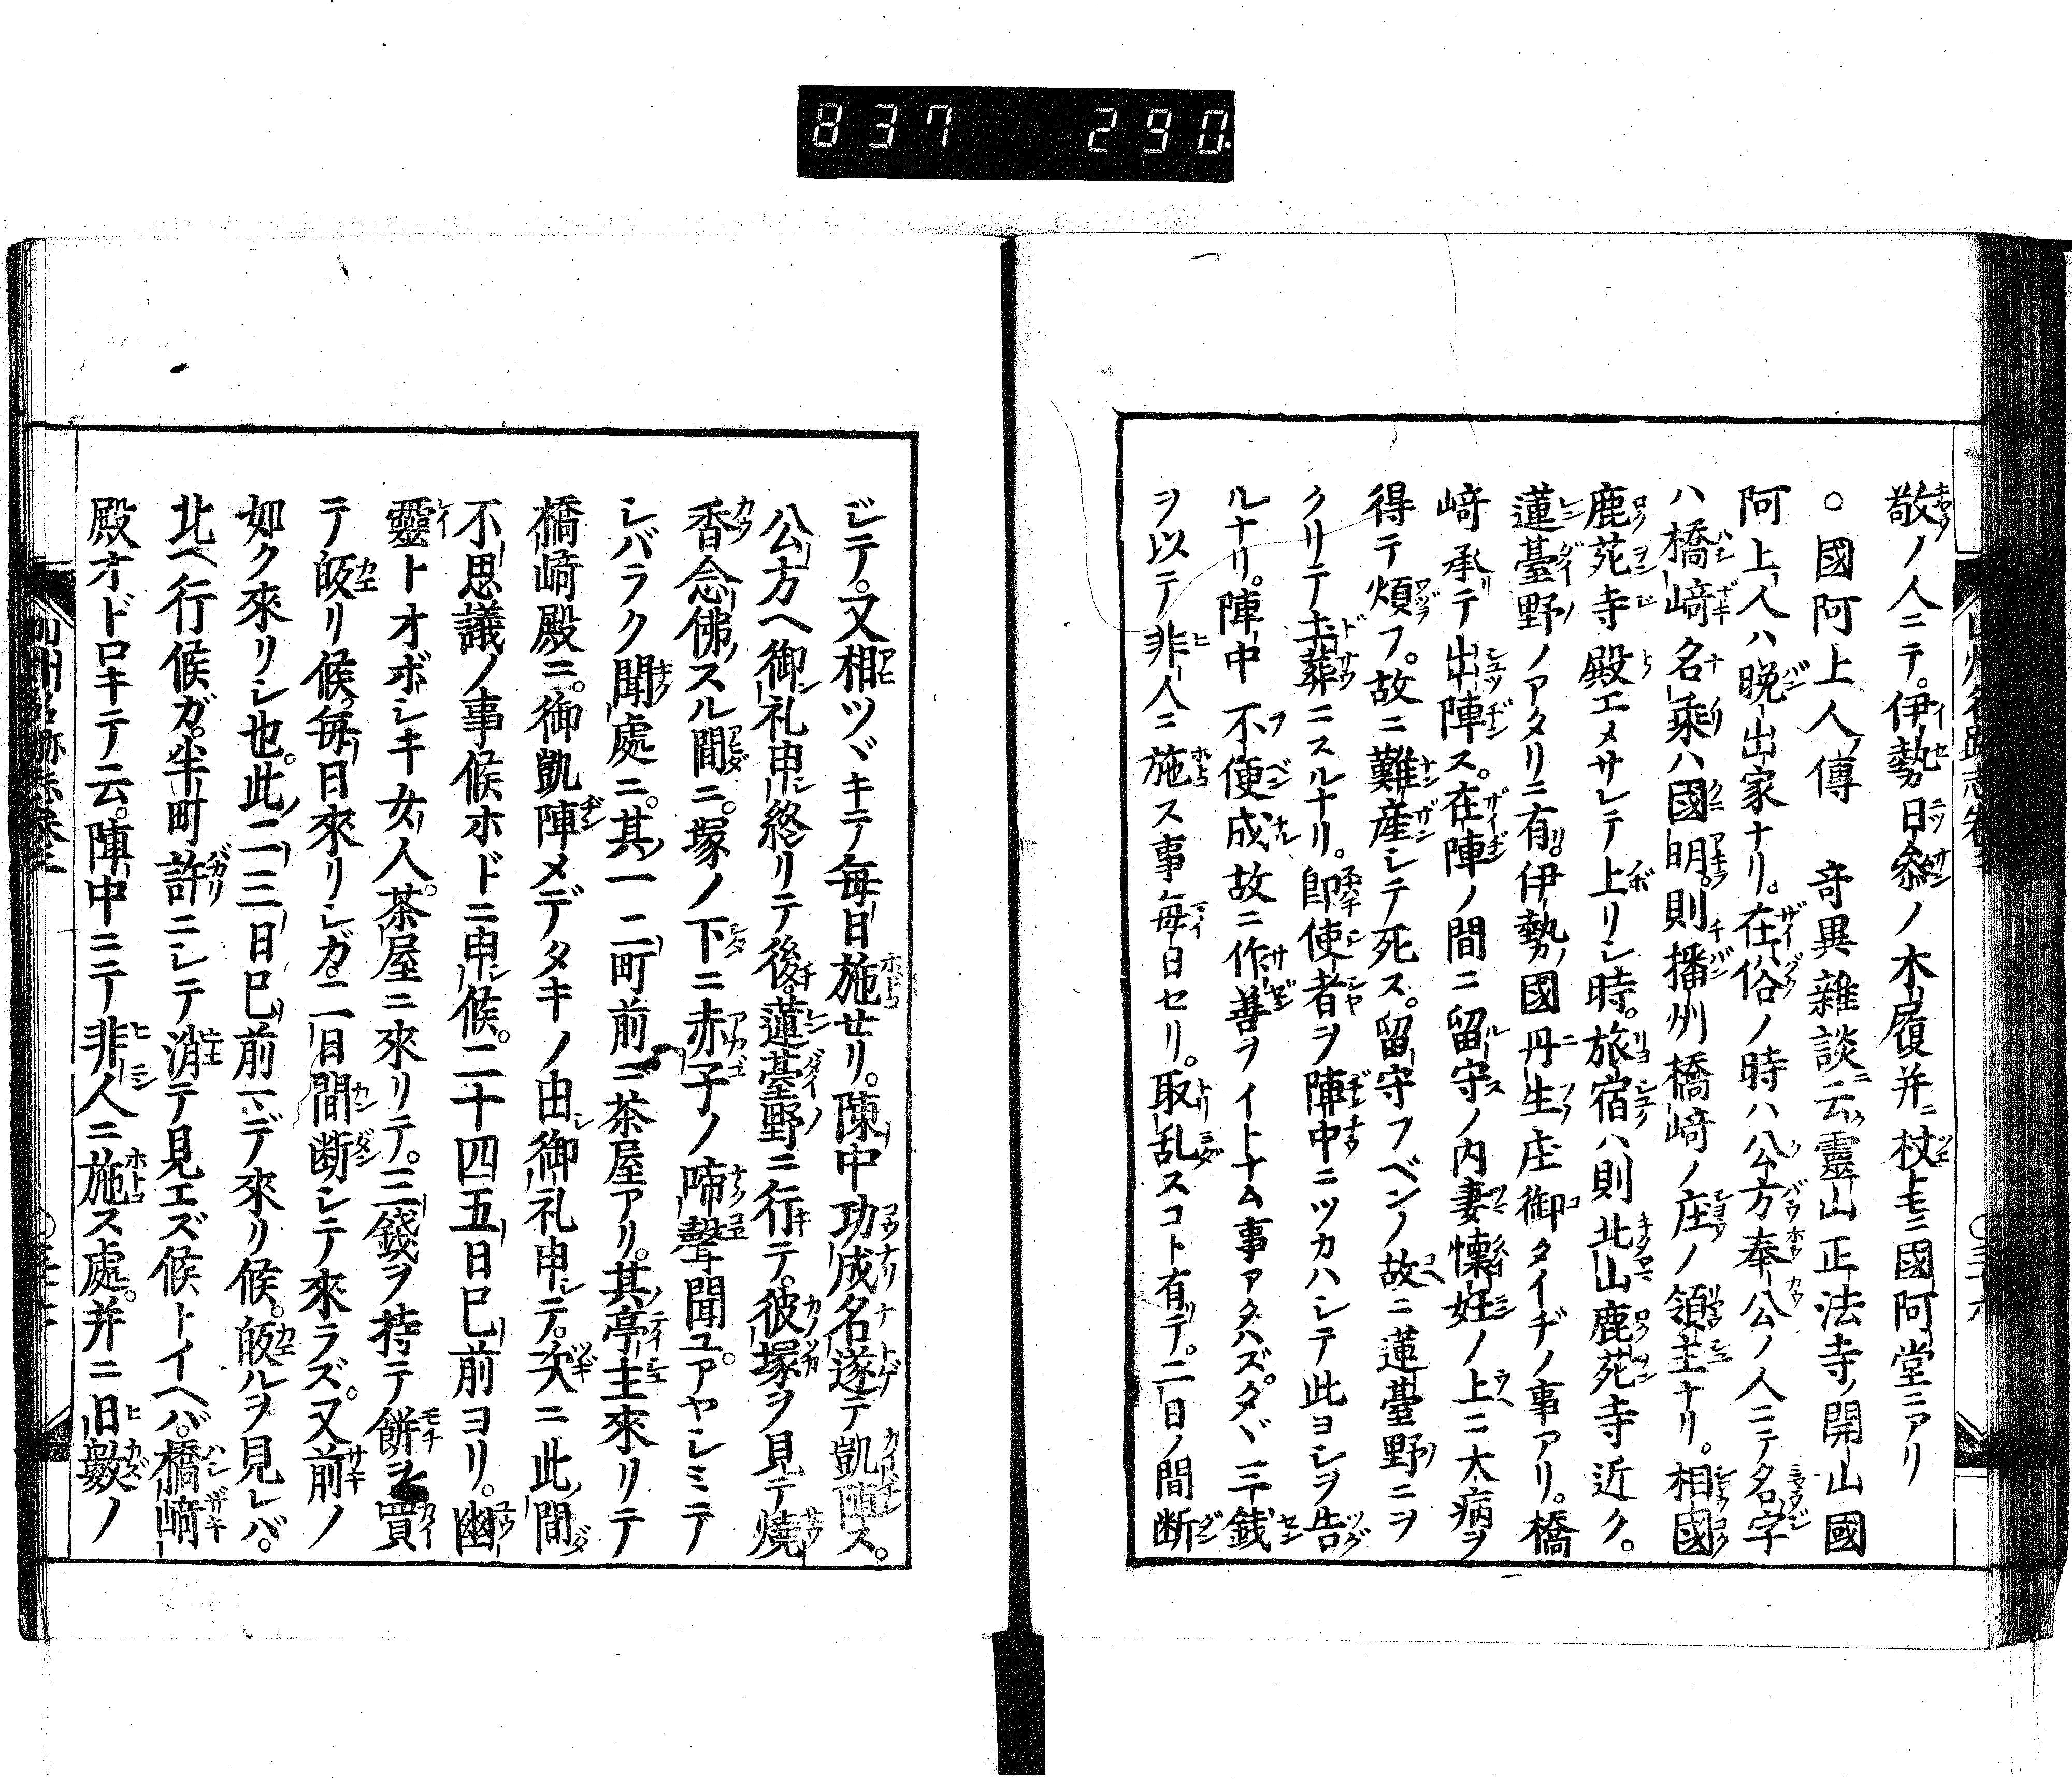 837 290
敬ノ人ニテ。伊勢日参ノ木履并ニ杖トモニ國阿堂ニアリ
○國阿上人傳　奇異雜談ニ云靈山正法寺ノ開山國
阿上人ハ晩出家ナリ。在俗ノ時ハ公方奉公ノ人ニテ名字
ハ橋﨑名乘ハ國明。則播州橋﨑ノ庄ノ領主ナリ。相國
鹿苑寺殿エメサレテ上リシ時。旅宿ハ則北山鹿苑寺近ク。
蓮臺野ノアタリニ有。伊勢國丹生庄御タイヂノ事アリ。橋
﨑承テ出陣ス。在陣ノ間ニ留守ノ内妻懷妊ノ上ニ大病ヲ
得テ煩フ。故ニ難産シテ死ス。留守フベンノ故ニ蓮臺野ニヲ
クリテ土葬ニスルナリ。即使者ヲ陣中ニツカハシテ此ヨシヲ告
ルナリ。陣中不便成故ニ作善ヲイトナム事アタハズ。タヾ三銭
ヲ以テ非人ニ施ス事毎日セリ。取乱スコト有テ。二日ノ間断
シテ。又相ツヾキテ毎日施セリ。陳中功成名遂テ凱陣ス。
公方ヘ御礼申終リテ後。蓮臺野ニ行テ。彼塚ヲ見テ燒
香念佛スル間ニ。塚ノ下ニ赤子ノ啼聲聞ユ。アヤシミテ
シバラク聞處ニ。其一二町前ニ茶屋アリ。其亭主來リテ
橋﨑殿ニ。御凱陣メデタキノ由御礼申テ。次ニ此間
不思議ノ事候ホドニ申候。二十四五日已前ヨリ。幽
靈トオボシキ女人。茶屋ニ來リテ。三錢ヲ持テ餅ヲ買
テ皈リ候。毎日來リシガ。二日間断シテ來ラズ。又前ノ
如ク來リシ也。此二三日已前マデ來リ候。皈ルヲ見レバ。
北ヘ行候ガ。半町許ニシテ消テ見エズ候トイヘバ。橋﨑
殿オドロキテ云。陣中ニテ非人ニ施ス處。并ニ日數ノ